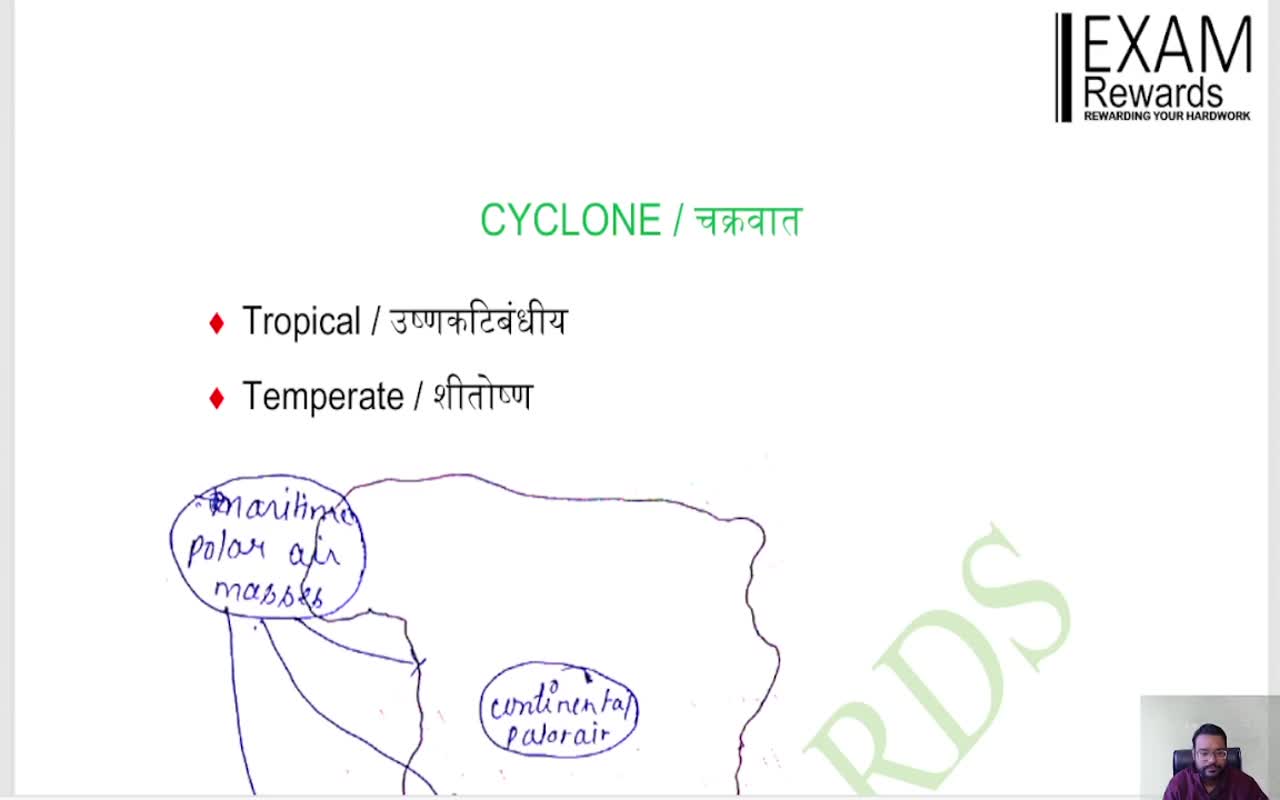 EXAM
Rewards
REWARDING YOUR HARDWORK
CYCLONE / चक्रवात
Tropical / उष्णकटिबंधीय
Temperate / शीतोष्ण
maritime
polar air
masses
continental
palorair
RDS